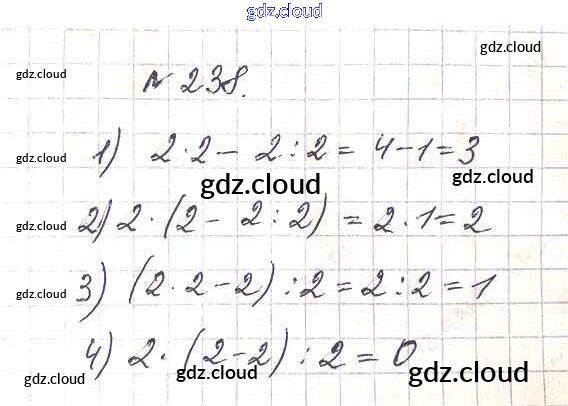 gdz.cloud
gdz.cloud
gdz.cloud
№ 238.
gdz.cloud
1) 2·2 - 2:2 = 4-1=3
gdz.cloud gdz.cloud
gdz.cloud
2) 2·(2 - 2:2) = 2·1=2
gdz.cloud gdz.cloud
3) (2·2-2):2=2:2=1
gdz.cloud
4) 2·(2-2):2=0
gdz.cloud gdz.cloud gdz.cloud